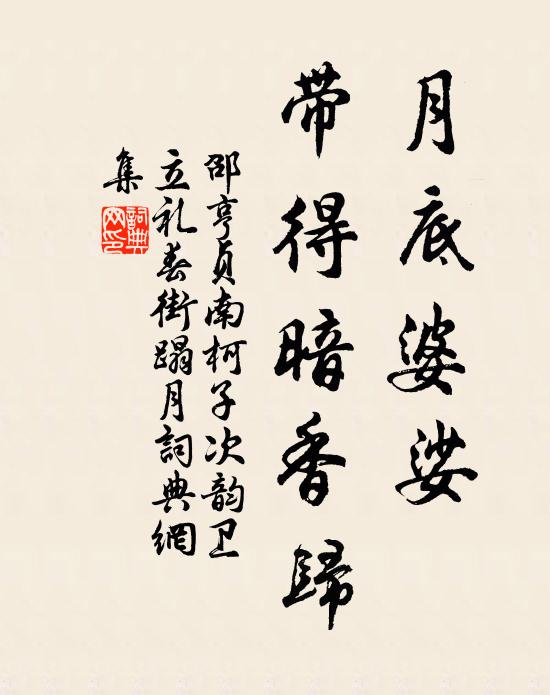 月底婆娑
带得暗香歸
邵亨贞南柯子次韵卫
立礼春街蹋月詞典網
集
詞典網印